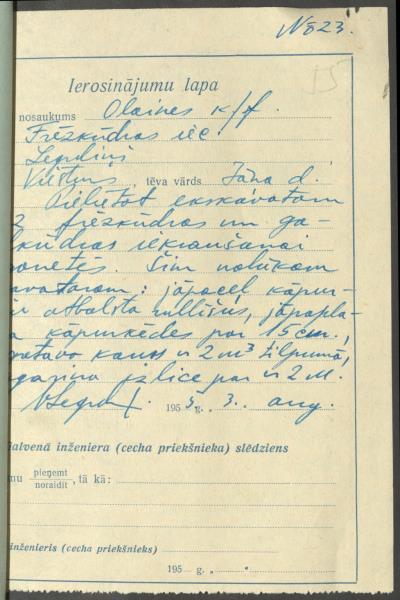 № 23.
Ierosinājumu lapa
nosaukums Olaines k/f.
Frēzkūdras iec.
Legzdiņš
Viesturs, tēva vārds Jāņa d.
Pielietot ekskavatoru
frēzkūdras un ga-
kūdras iekraušanai
Šim nolūkam
: jāpaceļ kāpur-
atbalsta rullīšus, jāpapla-
kāpurķēdes par 15 cm.,
kauss ar 2 m³ tilpumu,
izlice par 2 m.
195 5. g. 3. aug.
galvenā inženiera (cecha priekšnieka) slēdziens
mu pieņemt
noraidīt, tā kā:
inženieris (cecha priekšnieks)
195 g. „ “